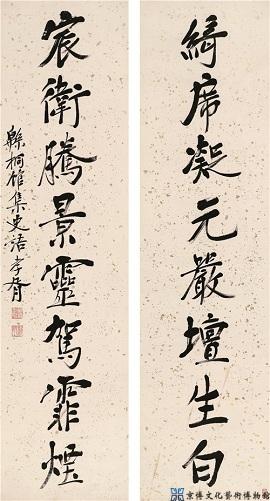 綺席凝元嚴壇生白
宸衛騰景靈駕霏煙
桐館集史語孝胥
京博文化藝術博物館